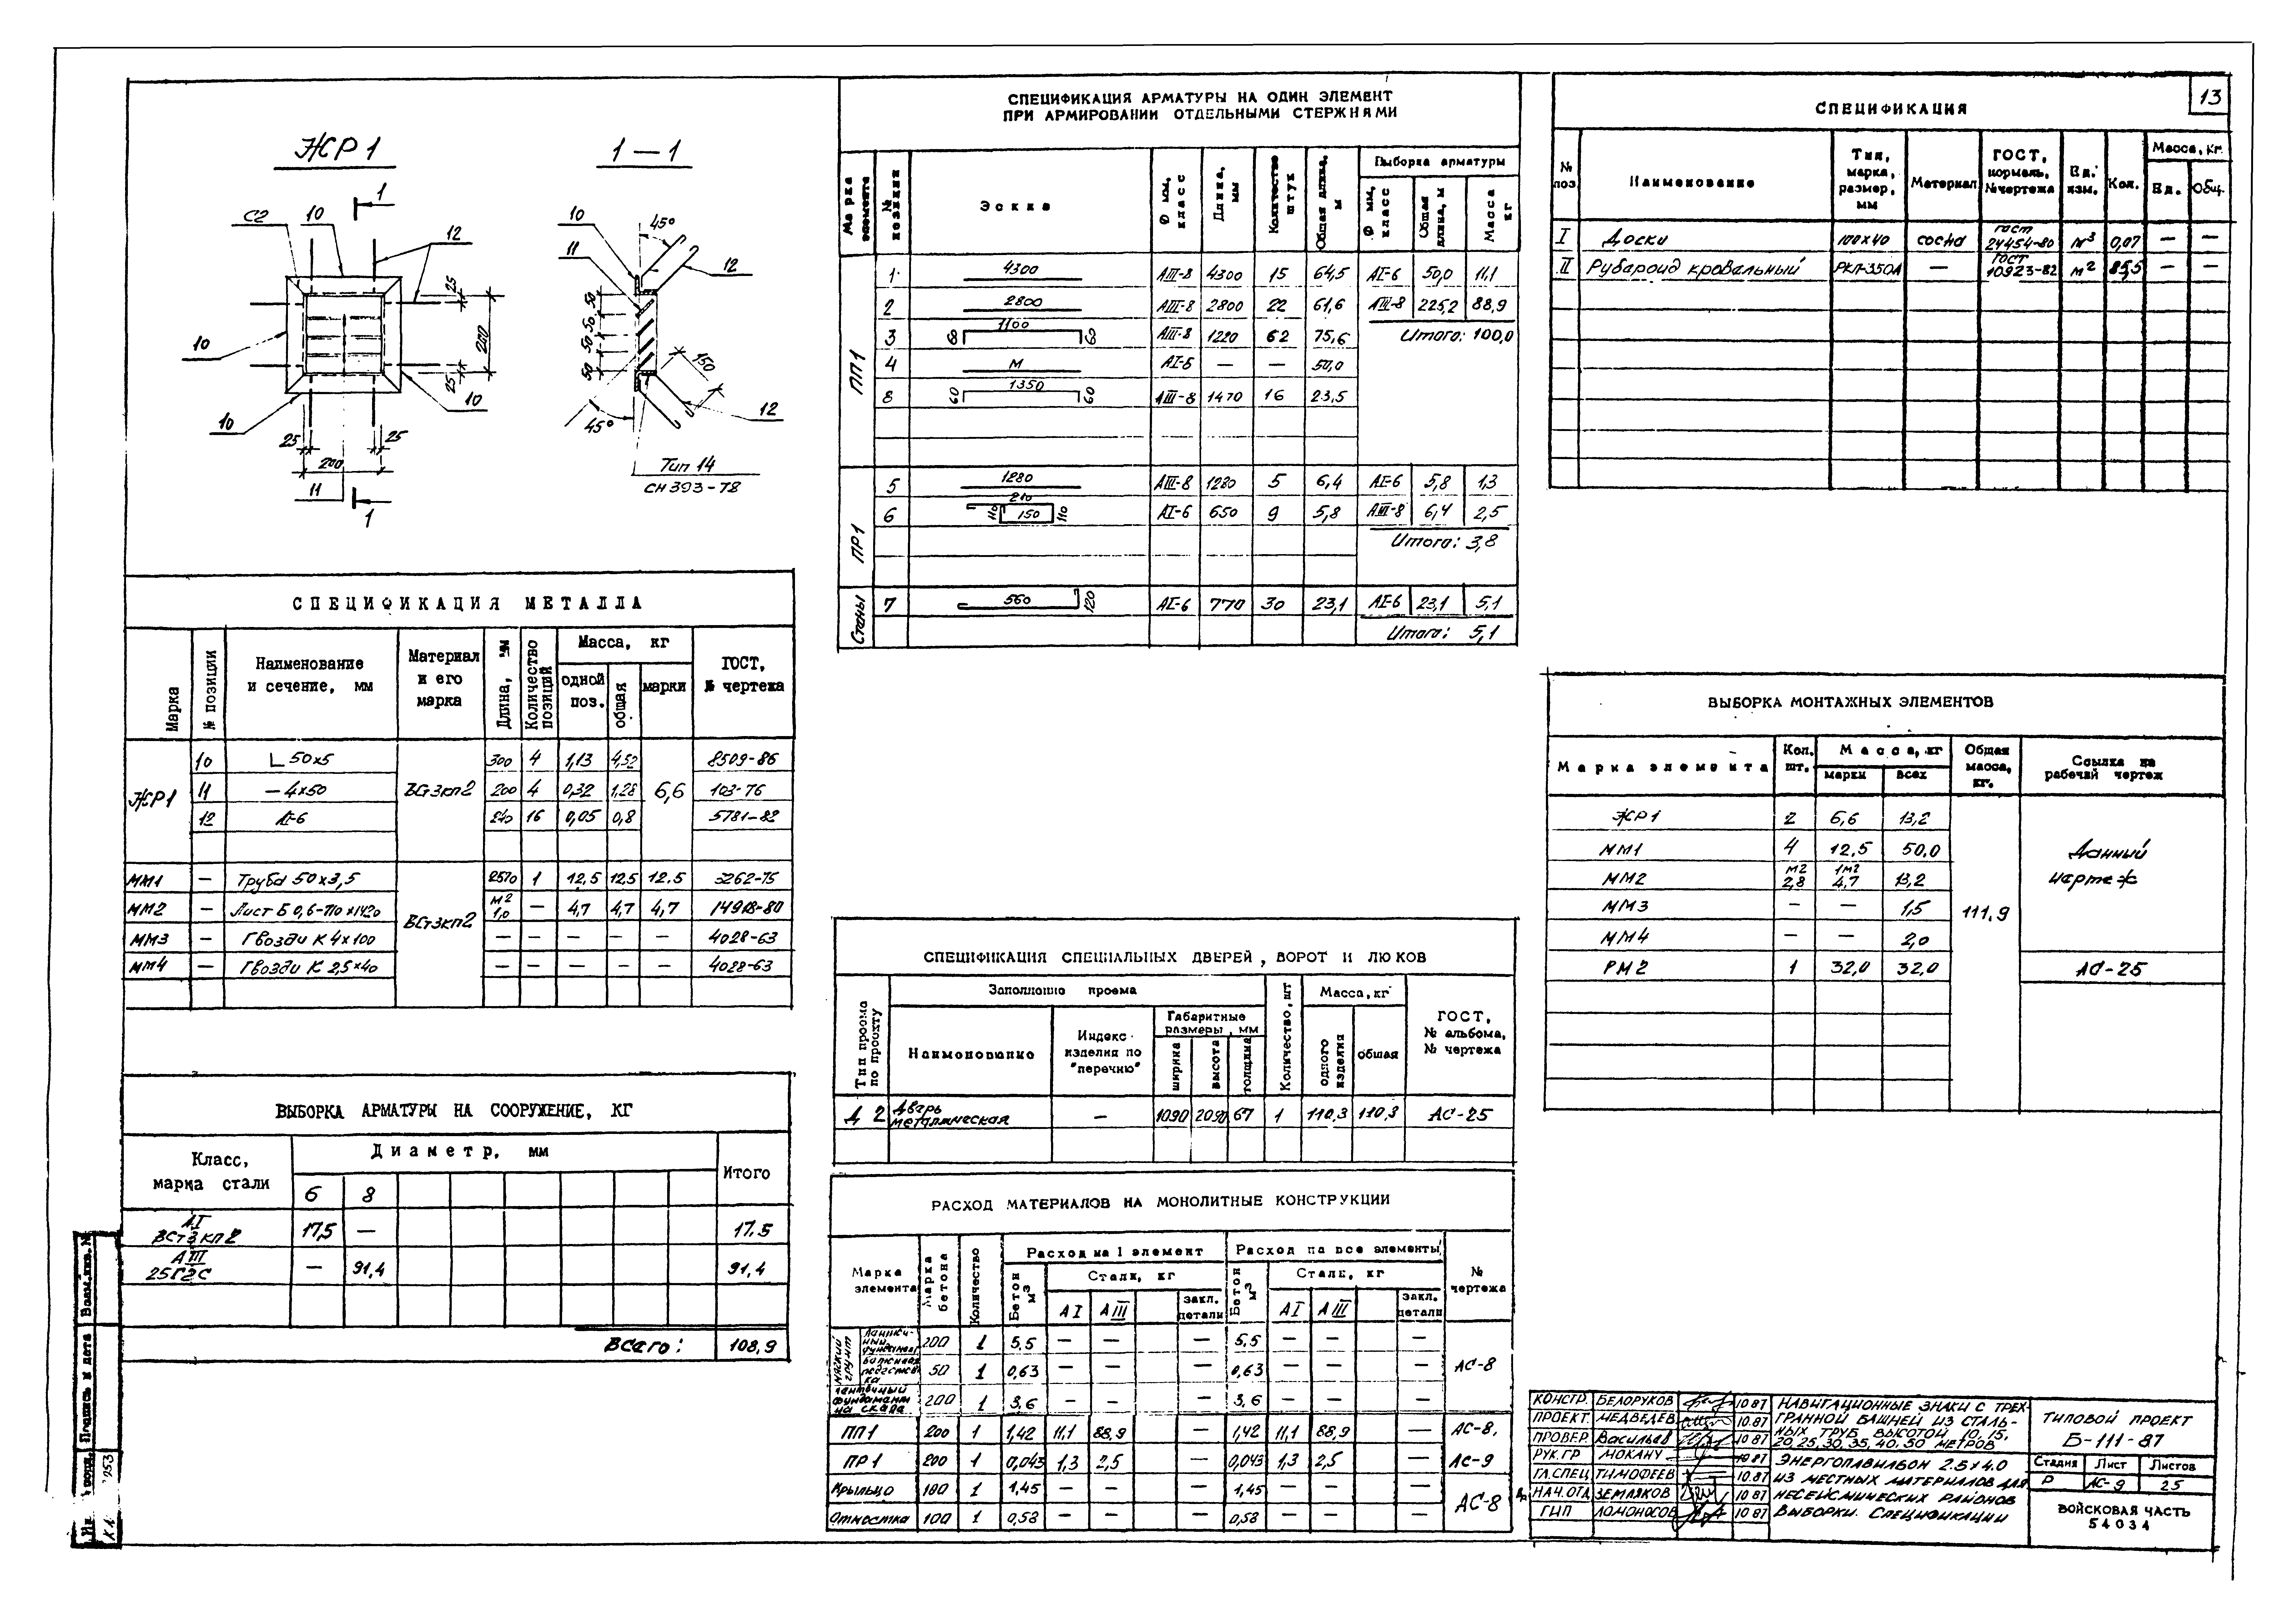 13
ЖР1
1—1
1
С2
10
12
10
10
10
25
200
25
25
25
200
11
1
10
11
45°
12
50
50
50
50
150
12
45°
Тип 14
СН 393-78
СПЕЦИФИКАЦИЯ МЕТАЛЛА
Марка № позиции Наименование и сечение, мм Материал и его марка Длина, мм Количество позиций Масса, кг одной поз. общая марки ГОСТ, № чертежа
ЖР1 10 L 50х5 ВСт3кп2 300 4 1,13 4,52 6,6 8509-86
11 — 4х50 200 4 0,32 1,28 103-76
12 АI-6 240 16 0,05 0,8 5781-82
ММ1 — Труба 50х3,5 ВСт3кп2 2570 1 12,5 12,5 12.5 3262-75
ММ2 — Лист Б 0,6-710х1420 м2 1,0 — 4,7 4,7 4,7 14918-80
ММ3 — Гвозди К 4х100 — — — — — 4028-63
ММ4 — Гвозди К 2,5х40 — — — — — 4028-63
ВЫБОРКА АРМАТУРЫ НА СООРУЖЕНИЕ, КГ
Класс, марка стали Диаметр, мм Итого
6 8
АI ВСт3кп2 17,5 — 17.5
АIII 25Г2С — 91,4 91,4
Всего: 108,9
СПЕЦИФИКАЦИЯ АРМАТУРЫ НА ОДИН ЭЛЕМЕНТ
ПРИ АРМИРОВАНИИ ОТДЕЛЬНЫМИ СТЕРЖНЯМИ
Марка элемента № позиции Эскиз Ø мм, класс Длина, мм Количество штук Общая длина, м Выборка арматуры Ø мм, класс Общая длина, м Масса кг
ПП1 1 4300 АIII-8 4300 15 64,5 АI-6 50,0 11,1
2 2800 АIII-8 2800 22 61,6 АIII-8 225,2 88,9
3 60 1100 60 АIII-8 1220 62 75,6 Итого: 100,0
4 М АI-6 — — 50,0
8 60 1350 60 АIII-8 1470 16 23,5
ПР1 5 1280 АIII-8 1280 5 6,4 АI-6 5,8 1,3
6 210 110 150 110 АI-6 650 9 5,8 АIII-8 6,4 2,5
Итого: 3,8
Стены 7 560 120 АI-6 770 30 23,1 АI-6 23,1 5,1
Итого: 5,1
СПЕЦИФИКАЦИЯ СПЕЦИАЛЬНЫХ ДВЕРЕЙ, ВОРОТ И ЛЮКОВ
Тип проема по проекту Заполнение проема Наименование Индекс изделия по "перечню" Габаритные размеры, мм ширина высота толщина Количество, шт Масса, кг одного изделия общая ГОСТ, № альбома, № чертежа
Д 2 Дверь металлическая — 1090 2090 67 1 110,3 110,3 АС-25
РАСХОД МАТЕРИАЛОВ НА МОНОЛИТНЫЕ КОНСТРУКЦИИ
Марка элемента Марка бетона Количество Расход на 1 элемент Бетон м3 Сталь, кг АI АIII закл. детали Расход на все элементы Бетон м3 Сталь, кг АI АIII закл. детали № чертежа
200 1 5,5 — — — 5,5 — — — АС-8
50 1 0,63 — — — 0,63 — — —
Ленточный фундамент на скале 200 1 3,6 — — — 3,6 — — —
ПП1 200 1 1,42 11,1 88,9 — 1,42 11,1 88,9 — АС-8,
ПР1 200 1 0,043 1,3 2,5 — 0,043 1,3 2,5 — АС-9
Крыльцо 100 1 1,45 — — — 1,45 — — — АС-8
Отмостка 100 1 0,58 — — — 0,58 — — —
СПЕЦИФИКАЦИЯ
№ поз. Наименование Тип, марка, размер, мм Материал ГОСТ, нормаль, № чертежа Ед. изм. Кол. Масса, кг. Ед. Общ.
I Доски 100х40 сосна ГОСТ 24454-80 м3 0,07 — —
II Рубероид кровельный РКП-350А — ГОСТ 10923-82 м2 85,5 — —
ВЫБОРКА МОНТАЖНЫХ ЭЛЕМЕНТОВ
Марка элемента Кол. шт. Масса, кг марки всех Общая масса, кг. Ссылка на рабочий чертеж
ЖР1 2 6,6 13,2 111,9 Данный чертеж
ММ1 4 12,5 50,0
ММ2 м2 2,8 1м2 4,7 13,2
ММ3 — — 1,5
ММ4 — — 2,0
РМ2 1 32,0 32,0 АС-25
КОНСТР. БЕЛОРУКОВ 10 87
ПРОЕКТ. МЕДВЕДЕВ 10 87
ПРОВЕР. Васильев 10 87
РУК.ГР МОКАНУ 10 87
ГЛ.СПЕЦ ТИМОФЕЕВ 10.87
НАЧ.ОТД ЗЕМЛЯКОВ 10 87
ГИП ЛОМОНОСОВ 10 87
НАВИГАЦИОННЫЕ ЗНАКИ С ТРЕХ-
ГРАННОЙ БАШНЕЙ ИЗ СТАЛЬ-
НЫХ ТРУБ ВЫСОТОЙ 10, 15,
20, 25, 30, 35, 40, 50 МЕТРОВ
ЭНЕРГОПАВИЛЬОН 2.5х4.0
ИЗ МЕСТНЫХ МАТЕРИАЛОВ ДЛЯ
НЕСЕЙСМИЧЕСКИХ РАЙОНОВ
ВЫБОРКИ. СПЕЦИФИКАЦИИ
ТИПОВОЙ ПРОЕКТ
Б-111-87
Стадия Лист Листов
Р АС-9 25
ВОЙСКОВАЯ ЧАСТЬ
54034
Взам.инв.№
Подпись и дата